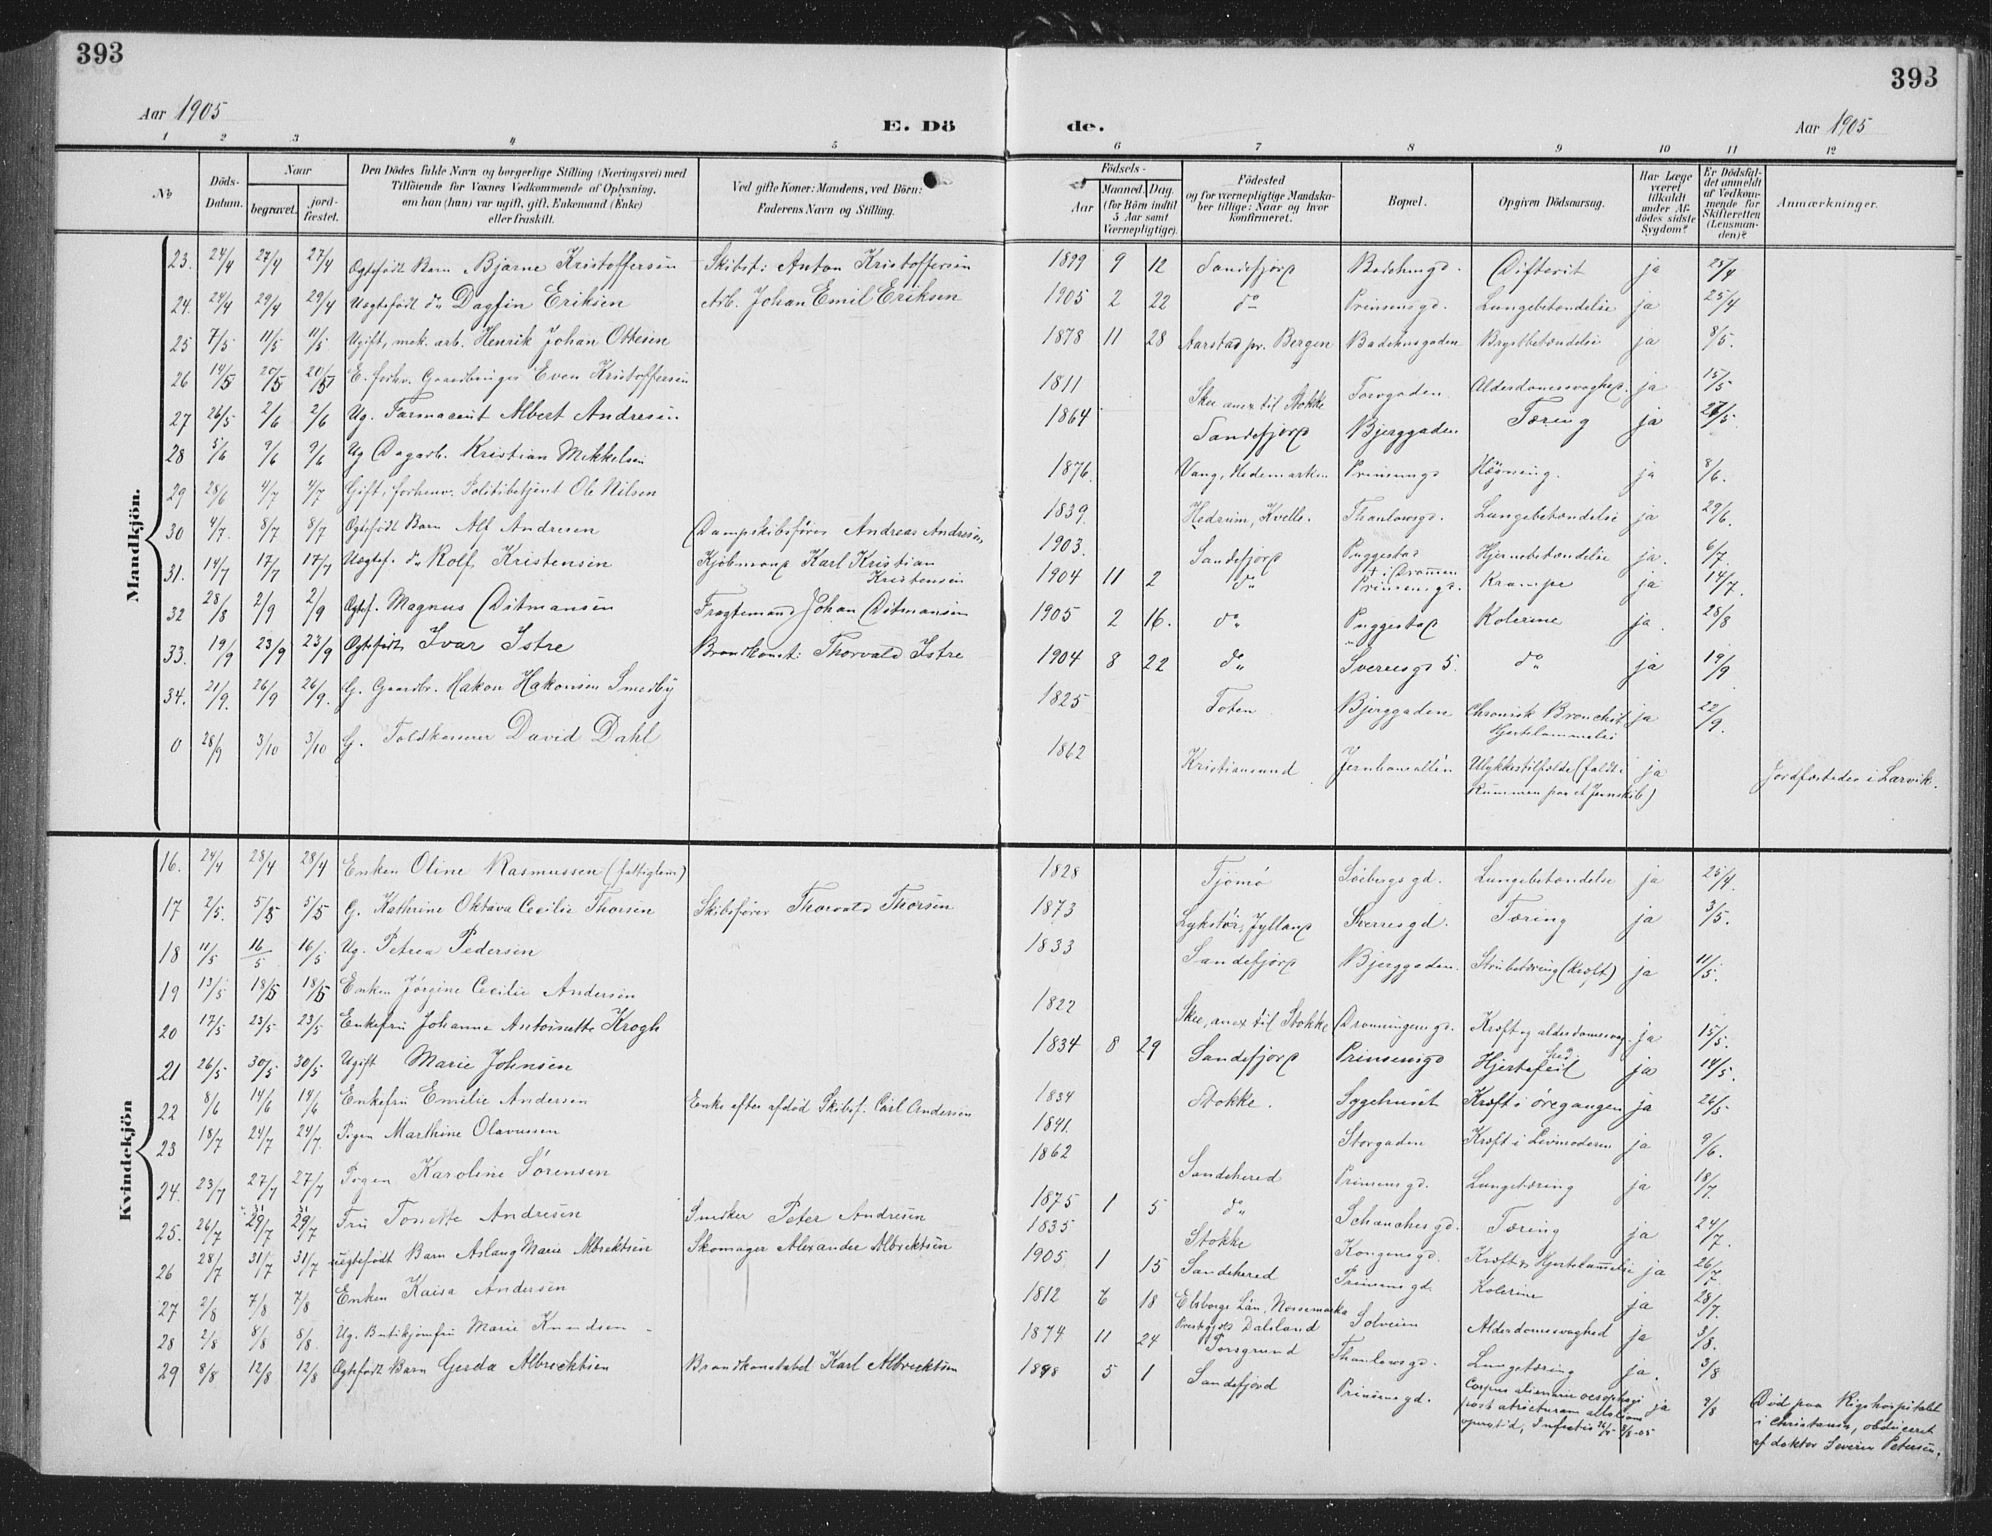 393
393
Aar 1905
E. Dö
de.
Aar 1905
1 2 3 4 5 6 7 8 9 10 11 12
No
Döds-Datum.
Naar
begravet.
jord-fæstet.
Den Dödes fulde Navn og borgerlige Stilling (Næringsvei) med
Tilföiende for Voxnes Vedkommende af Oplysning,
om han (hun) var ugift, gift, Enkemand (Enke)
eller fraskilt.
Ved gifte Koner: Mandens, ved Börn:
Faderens Navn og Stilling.
Födsels-
Aar
Maaned. Dag.
(for Börn indtil
5 Aar samt
Værnepligtige).
Födested
og for værnepligtige Mandska-
ber tillige: Naar og hvor
konfirmeret.
Bopæl.
Opgiven Dödsaarsag.
Har Læge
været
tilkaldt
under Af-
dödes sidste
Sygdom?
Er Dödsfal-
det anmeldt
af Vedkom-
mende for
Skifteretten
(Lensman-
den)?
Anmærkninger.
Mandkjön.
23. 24/4 27/4 27/4 Ægtefødt Barn Bjarne Kristoffersen Skibsf: Anton Kristoffersen 1899 9 12 Sandefjord Difterit ja 25/4
24. 24/4 29/4 29/4 Uægtefødt do Dagfin Eriksen Arb. Johan Emil Eriksen 1905 2 22 do Prinsensgd. Lungebetændelse ja 25/4
25 7/5 11/5 11/5 Ugift, mek. arb. Henrik Johan Ottesen 1878 11 28 Aarstad pr. Bergen Badehusgaden Brystbetændelse ja 8/5.
26 14/5 20/5 20/5 E. forhv. Gaardbruger Even Kristoffersen 1811 Skee anex til Stokke Torvgaden Alderdomssvaghed. ja 15/5
27 26/5 2/6 2/6 Ug. Farmaceut Albert Andresen 1864 Sandefjord Bjerggaden Tæring ja 27/5.
28 5/6 9/6 9/6 Ug Dagarb. Kristian Mikkelsen 1876 Vang, Hedemarken Prinsensgd Hægning. ja 8/6.
29 28/6 4/7 4/7 Gift, forhenv. Politibetjent Ole Nilsen 1839 Hedrum, Kvelle. Thaulowsgd. Lungebetændelse ja 29/6.
30 4/7. 8/7 8/7 Ægtefødt Barn Alf Andresen Dampskibsfører Andreas Andresen 1903. Sandefjord Puggestad Hjernebetændelse ja. 6/7.
31. 14/7 17/7 17/7 Uægtef. do Rolf Kristensen Kjøbmand Karl Kristian
Kristensen 1904 11 2 do + i Drammen
Prinsensgd. Krampe ja 14/7.
32 28/8 2/9 2/9 Ægtef. Magnus Ditmansen Fragtemand Johan Ditmansen 1905 2 16. do Puggestad Kolerine ja. 28/8
33. 19/9 23/9 23/9 Ægtefødt Ivar Istre Brandkonst: Thorvald Istre 1904 8 22 do Sverresgd 5. do ja 19/9
34. 21/9. 26/9 26/9. G. Gaardbr. Hakon Hakonsen Smedby 1825 Toten Bjerggaden Chronisk Bronchit
Hjertelammelse ja 22/9.
0 28/9 3/10 3/10 G. Toldkasserer David Dahl 1862 Kristiansund Jernbanealleen Ulykkestilfælde (faldt i
Rummen paa et Jernskib) ja Jordfæstedes i Larvik.
Kvindekjön
16. 24/4 28/4 28/4 Enken Oline Rasmussen (fattiglem) 1828 Tjømø Søebergsgd. Lungebetændelse ja 25/4.
17 2/5. 5/5 5/5 G. Kathrine Oktava Cecilie Thorsen Skibsfører Thorvald Thorsen 1873 Lykstør, Jylland Sverresgd. Tæring ja 3/5.
18 11/5 16/5 16/5 Ug. Petrea Pedersen 1833 Sandefjord Bjerggaden. Strubetæring (Kræft) ja 11/5.
19 13/5 18/5 18/5 Enken Jørgine Cecilie Andersen 1822 Skee, anex til Stokke Dronningensgd. Kræft og alderdomssvag-
hed ja 15/5.
20 17/5 23/5 23/5 Enkefru Johanne Antoinette Krogh 1834 8 29 Sandefjord Prinsensgd Hjertefeil ja 14/5.
21 26/5 30/5 30/5 Ugift Marie Johnsen 1834 Stokke. Sygehuset Kræft i øregangen ja 26/5
22 8/6 14/6 14/6 Enkefru Emilie Andersen Enke efter afdød Skibsf. Carl Andersen 1841. Storgaden Kræft i Livmoderen ja 9/6.
23 18/7 24/7 24/7. Pigen Marthine Olavussen 1862 Sandehered Prinsensgd. Lungetæring ja 18/7.
24. 23/7 27/7 27/7 Pigen Karoline Sørensen 1875 1 5 do Schanchesgd. Tæring ja 24/7.
25. 26/7 29/7 29/7 Fru Tonette Andresen Smelker Peter Andresen 1835 Stokke Kongensgd. Kræft og Hjertelammelse ja 26/7.
26 28/7 31/7 31/7 uegtefødt Barn Aslaug Marie Albrektsen Skomager Alexander Albrektsen 1905 1 15 Sandehered Prinsensgd. Kolerine ja 28/7.
27 2/8 7/8 7/8 Enken Kaisa Andersen 1812 6 18 Elsborgs Län, Nossemarka
Prestegjæls Dalsland Solveien Alderdomssvaghed ja 3/8.
28 2/8 8/8 8/8. Ug. Butikjomfru Marie Knudsen 1874 11 24 Porsgrund Thaulowsgd. Lungetæring ja. 3/8
29 8/8 12/8 12/8 Ægtefødt Barn Gerda Albrecktsen Brandkonstabel Karl Albrecktsen 1898 5 1 Sandefjord Prinsensgd. Corpus alienum oesophagi
post stricturam
operatid, Infectio ja 9/8 Død paa Rigshospitalet
i Christiania, obduceret
af doktor Severin Petersen.